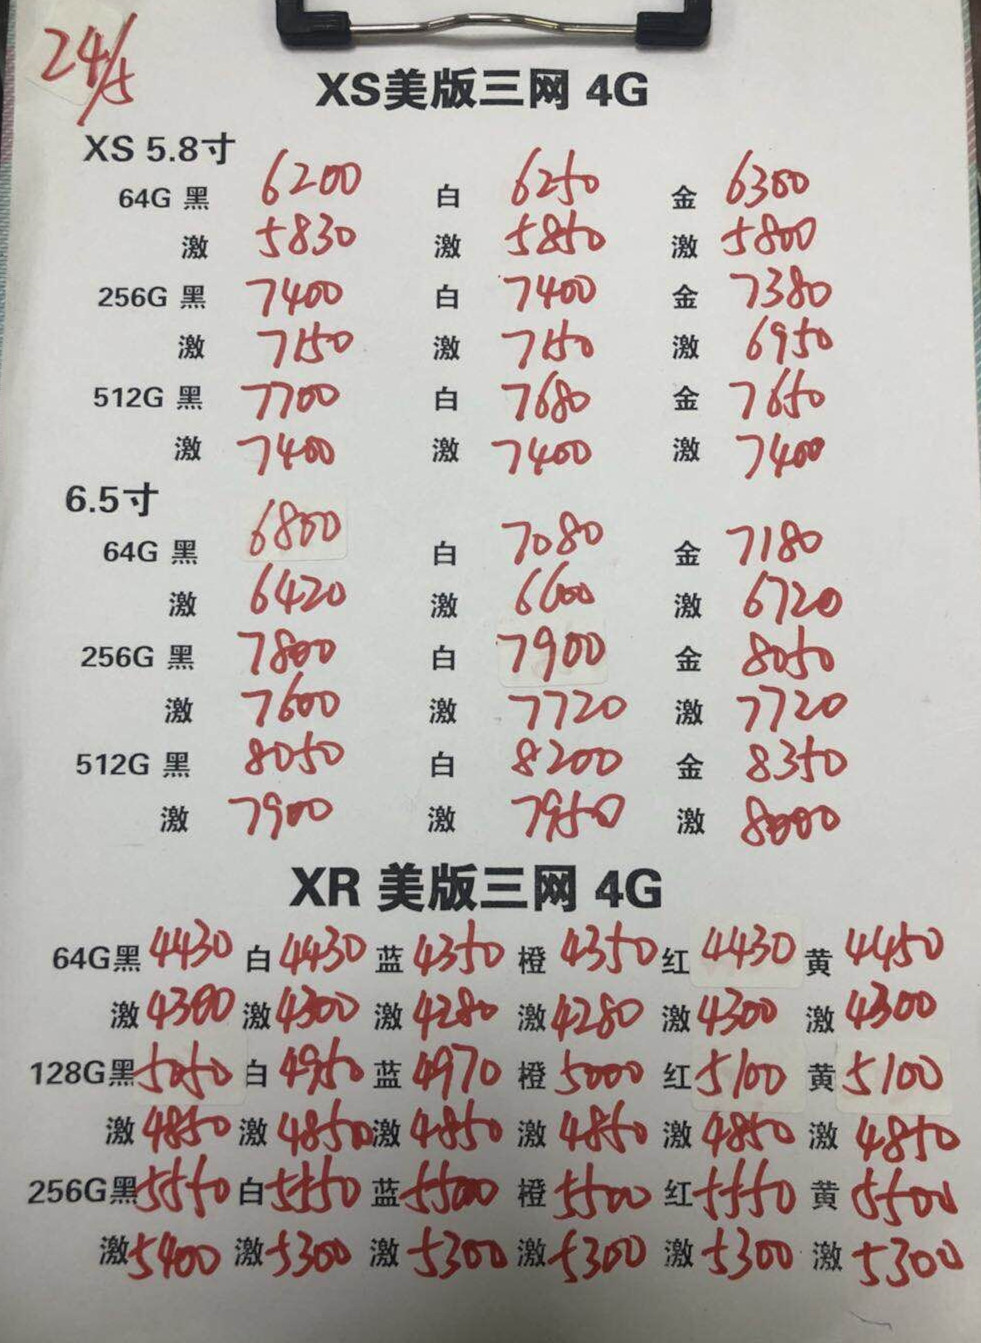 24/5
XS美版三网 4G
XS 5.8寸
64G 黑 6200 白 6250 金 6300
激 5830 激 5850 激 5800
256G 黑 7400 白 7400 金 7380
激 7150 激 7150 激 6950
512G 黑 7700 白 7680 金 7650
激 7400 激 7400 激 7400
6.5寸
64G 黑 6800 白 7080 金 7180
激 6420 激 6600 激 6720
256G 黑 7800 白 7900 金 8050
激 7600 激 7720 激 7720
512G 黑 8050 白 8200 金 8350
激 7900 激 7950 激 8000
XR 美版三网 4G
64G黑 4430 白 4430 蓝 4350 橙 4350 红 4430 黄 4450
激 4300 激 4300 激 4280 激 4280 激 4300 激 4300
128G黑 5050 白 4950 蓝 4970 橙 5000 红 5100 黄 5100
激 4850 激 4850 激 4850 激 4850 激 4850 激 4850
256G黑 5550 白 5550 蓝 5500 橙 5500 红 5550 黄 5500
激 5400 激 5300 激 5300 激 5300 激 5300 激 5300